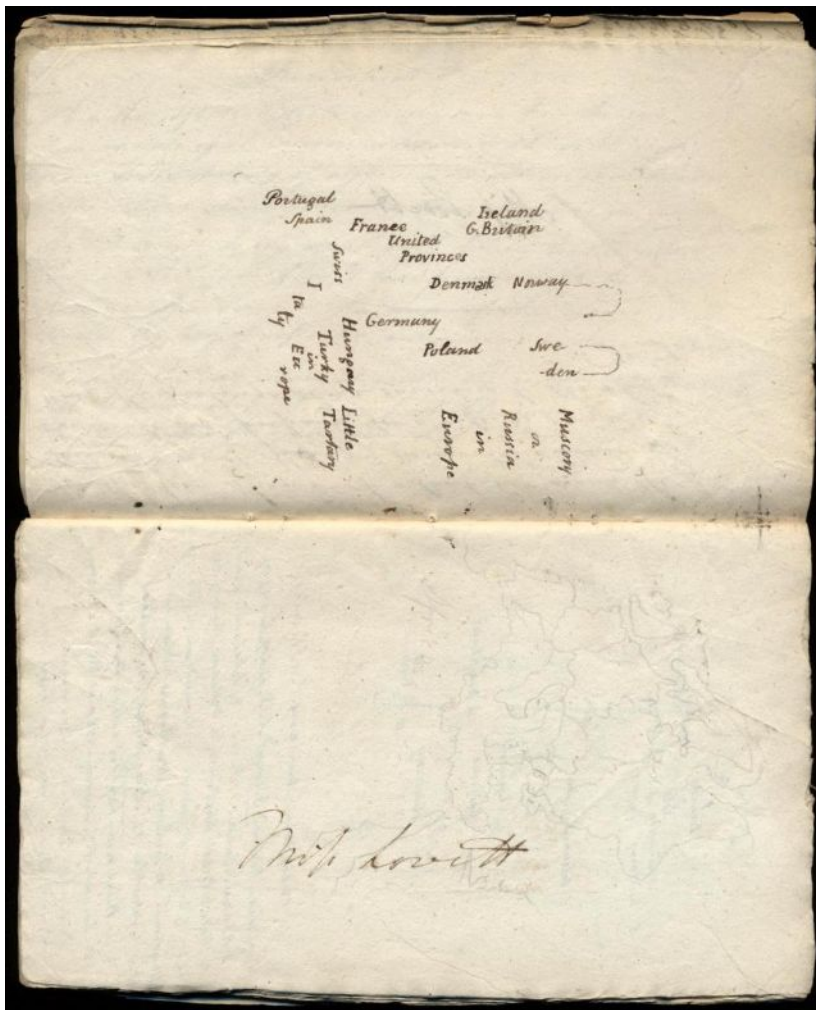 Portugal
Spain
France
Ireland
G. Britain
United
Provinces
Swiss
Denmark
Norway
I
ta
ly
Germany
Hungary
Poland
Swe
-den
Turky
in
Eu
rope
Little
Tartary
Muscovy
or
Russia
in
Europe
Miſs Lovett